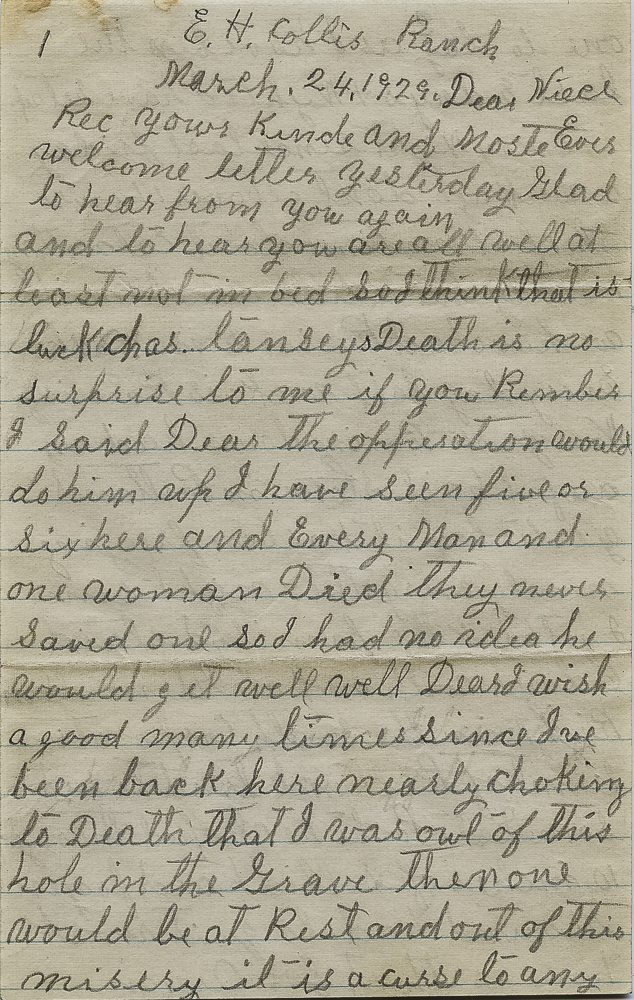 1
E. H. Collis Ranch
March. 24, 1929. Dear Niece
Rec yours Kinde and Moste Ever
welcome letter yesterday Glad
to hear from you again
and to hear you are all well at
least not in bed so I think that is
luck chas. Canseys Death is no
surprise to me if you Rember
I Said Dear the oppreration would
do him up I have seen five or
six here and Every Man and
one woman Died they never
Saved one so I had no idea he
would get well well Dear I wish
a good many times since I've
been back here nearly choking
to Death that I was owt of this
hole in the Grave then one
would be at Rest and out of this
misery it is a curse to any